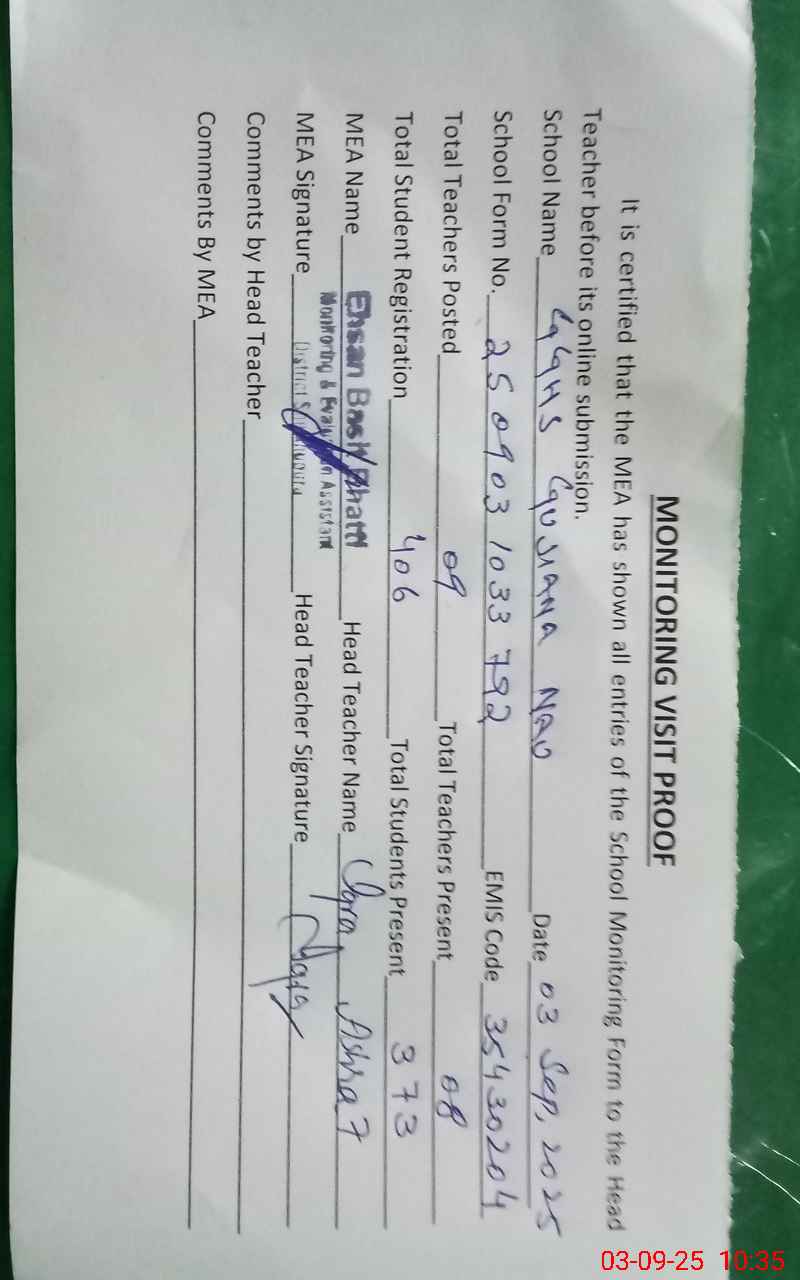 MONITORING VISIT PROOF
It is certified that the MEA has shown all entries of the School Monitoring Form to the Head
Teacher before its online submission.
School Name GGHS GAJIANA NAU Date 03 Sep, 2025
School Form No. 250903 1033 792 EMIS Code 35430204
Total Teachers Posted 09 Total Teachers Present 08
Total Student Registration 406 Total Students Present 373
MEA Name Ehsan Bhatti Head Teacher Name Iqra Ashraf
Monitoring & Evaluation Assistant
District
MEA Signature Head Teacher Signature Iqra
Comments by Head Teacher
Comments By MEA
03-09-25 10:35